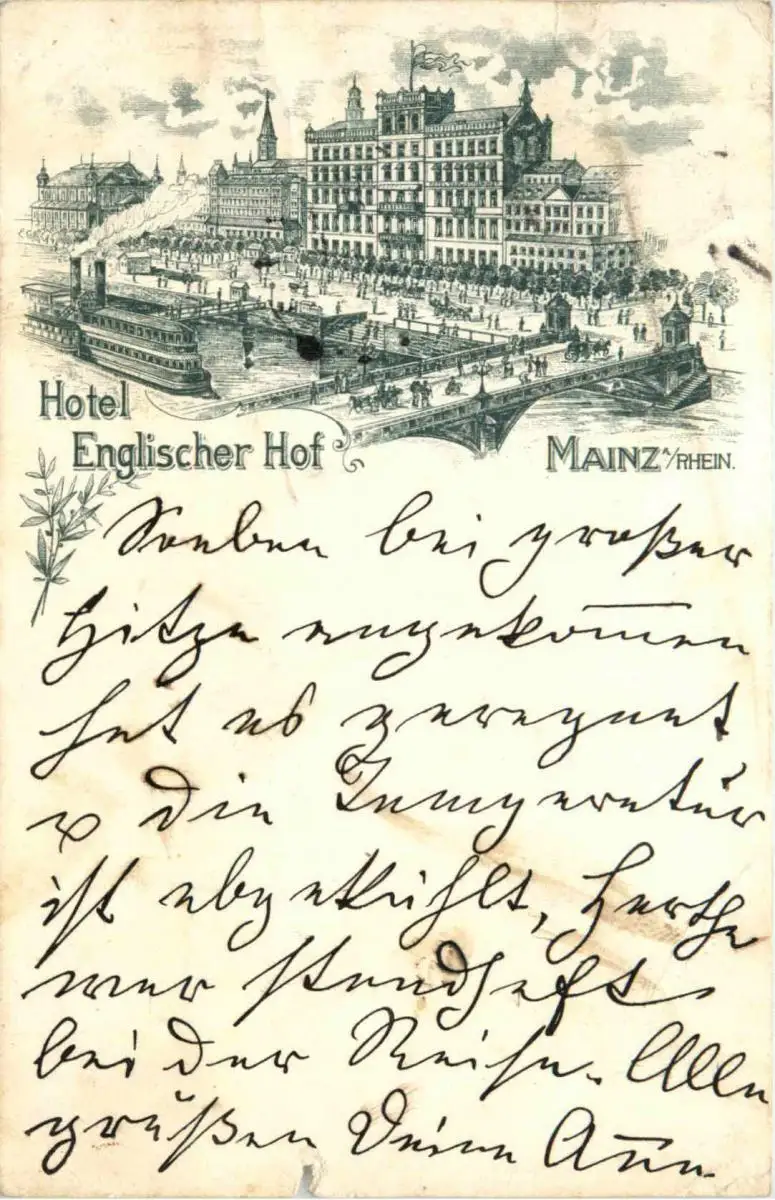 Hotel
Englischer Hof
MAINZ A/RHEIN.
Soeben bei großer
Hitze angekom̅en
hat es geregnet
u die Temperatur
ist abgekühlt, Herthe
war standhaft
bei der Reise. Alle
grüßen Deine Ann̅a